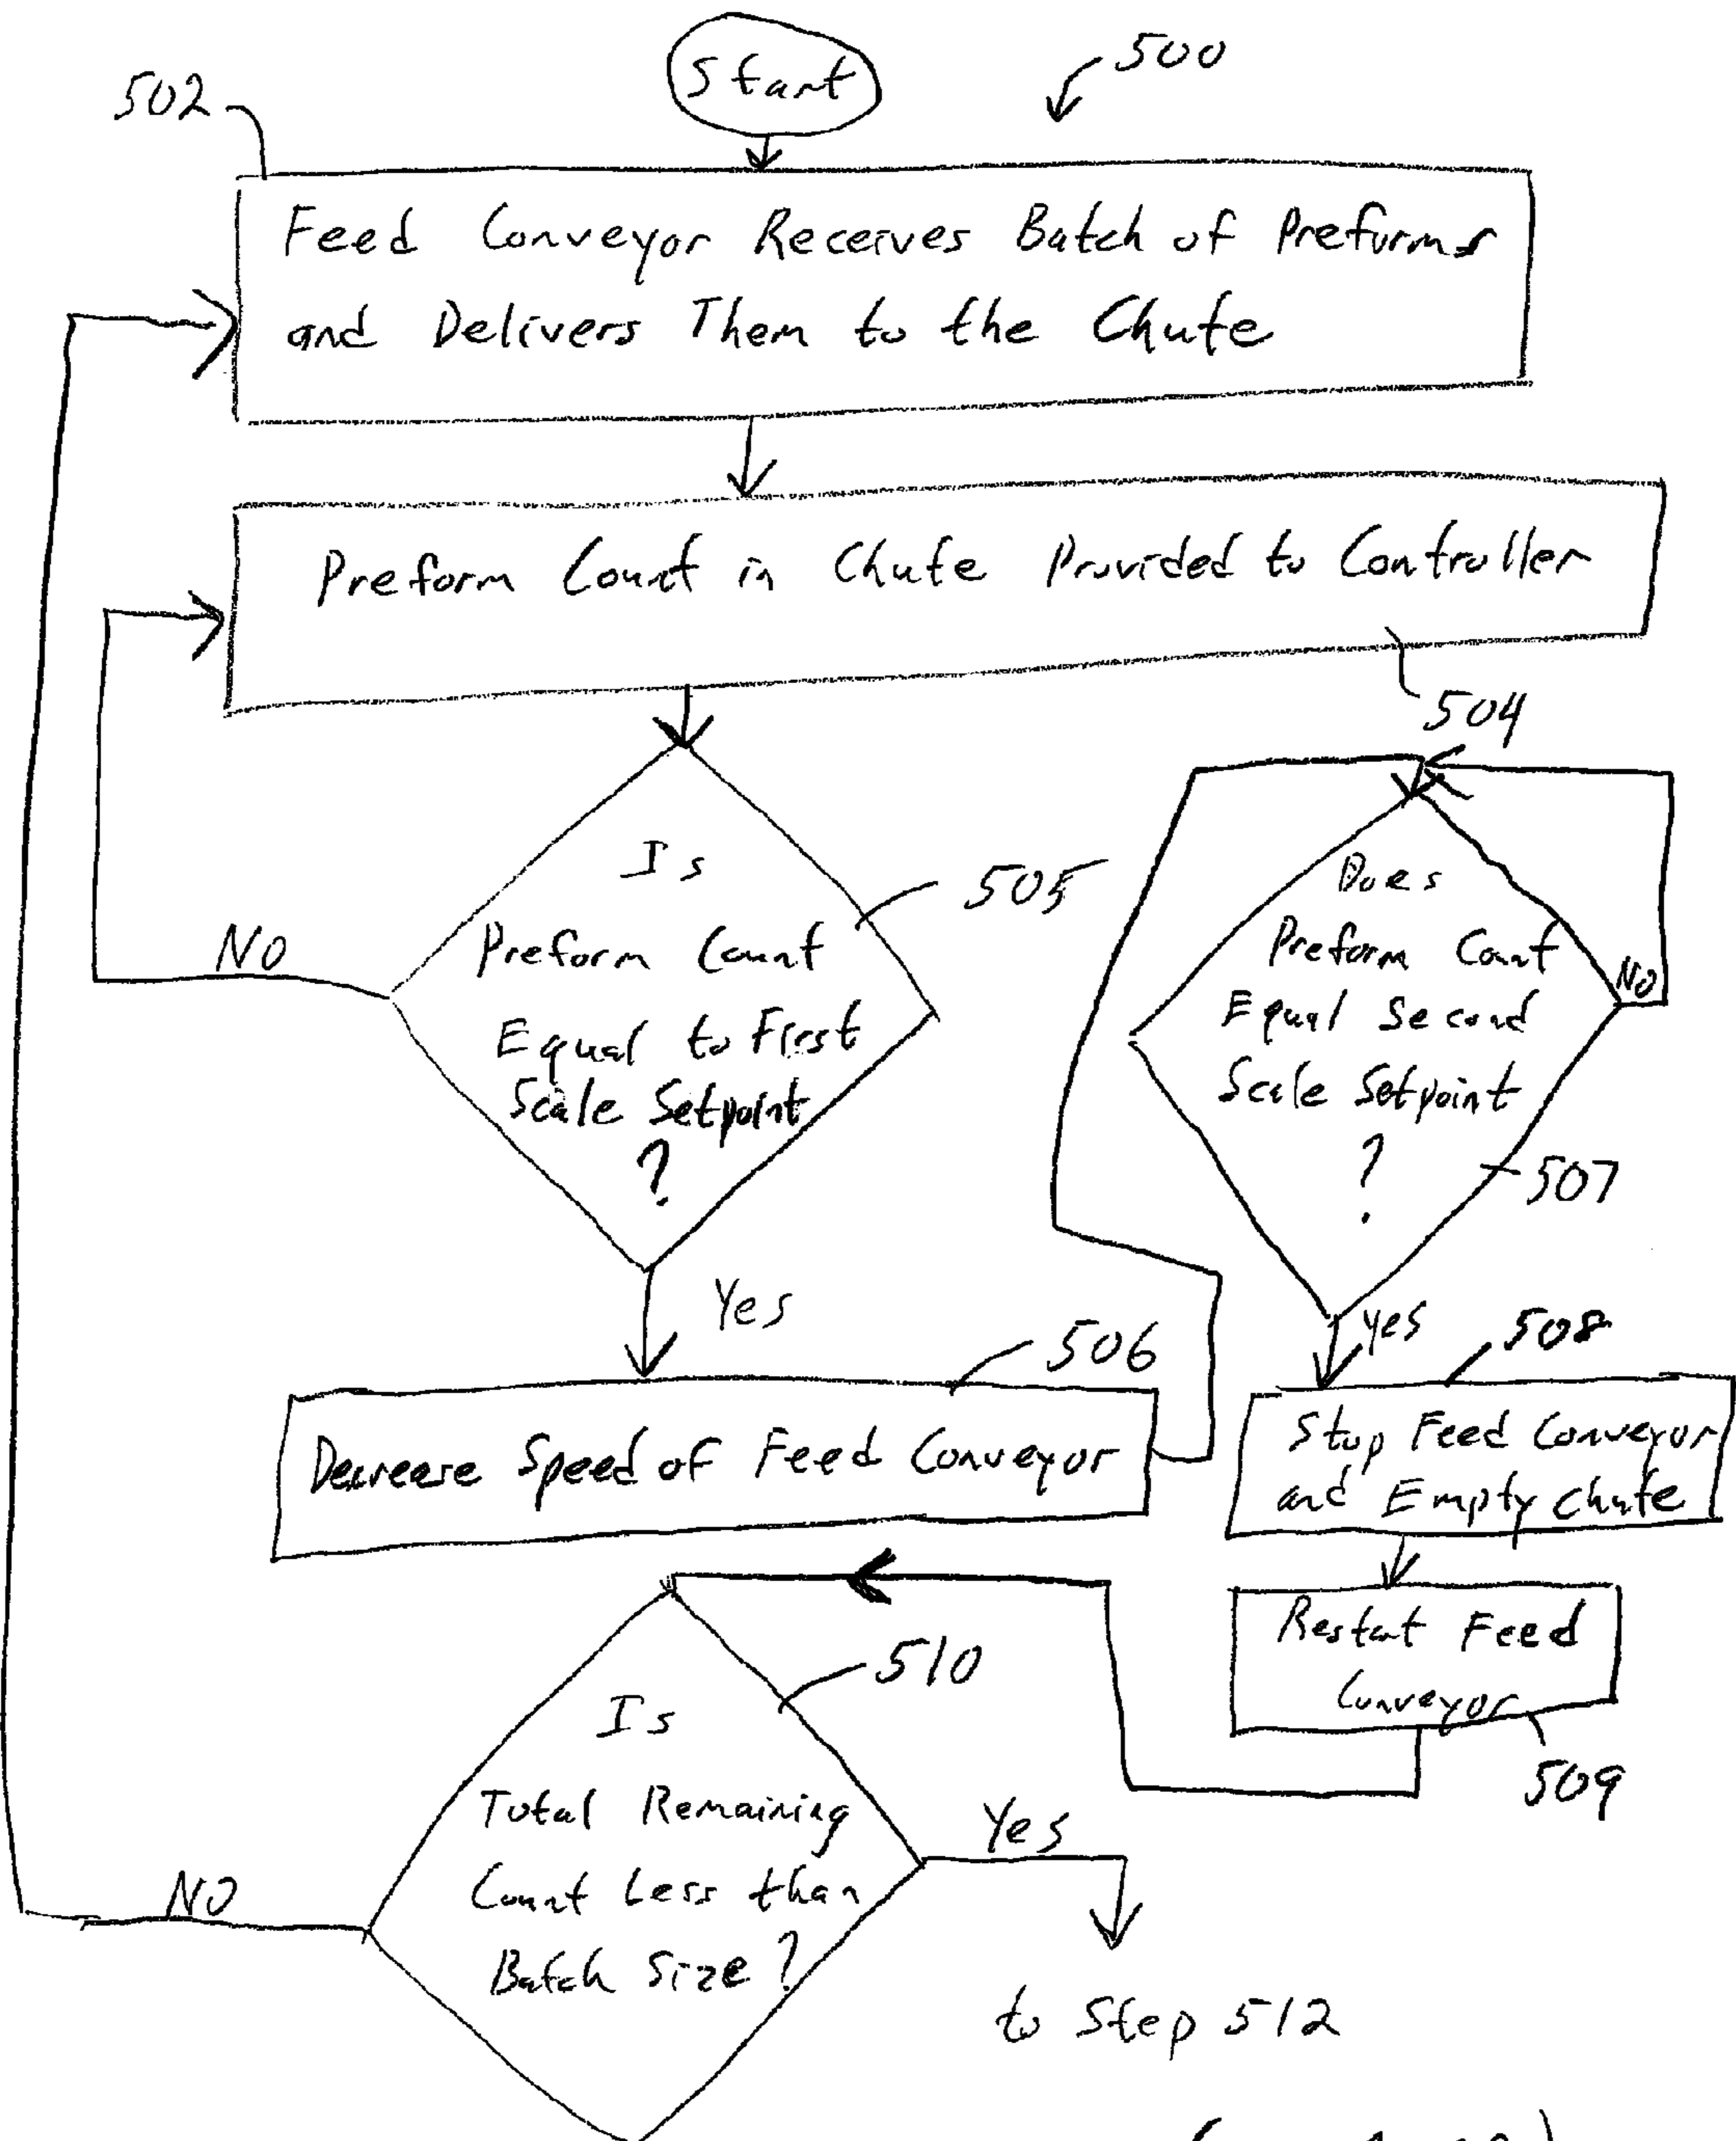 Start
500
502
Feed Conveyor Receives Batch of Preforms
and Delivers Them to the Chute
Preform Count in Chute Provided to Controller
504
Is
Preform Count
Equal to First
Scale Setpoint
?
505
NO
Yes
Does
Preform Count
Equal Second
Scale Setpoint
?
NO
507
Yes
506
Decrease Speed of Feed Conveyor
508
Stop Feed Conveyor
and Empty Chute
Restart Feed
Conveyor
509
510
Is
Total Remaining
Count Less than
Batch Size?
NO
Yes
to Step 512